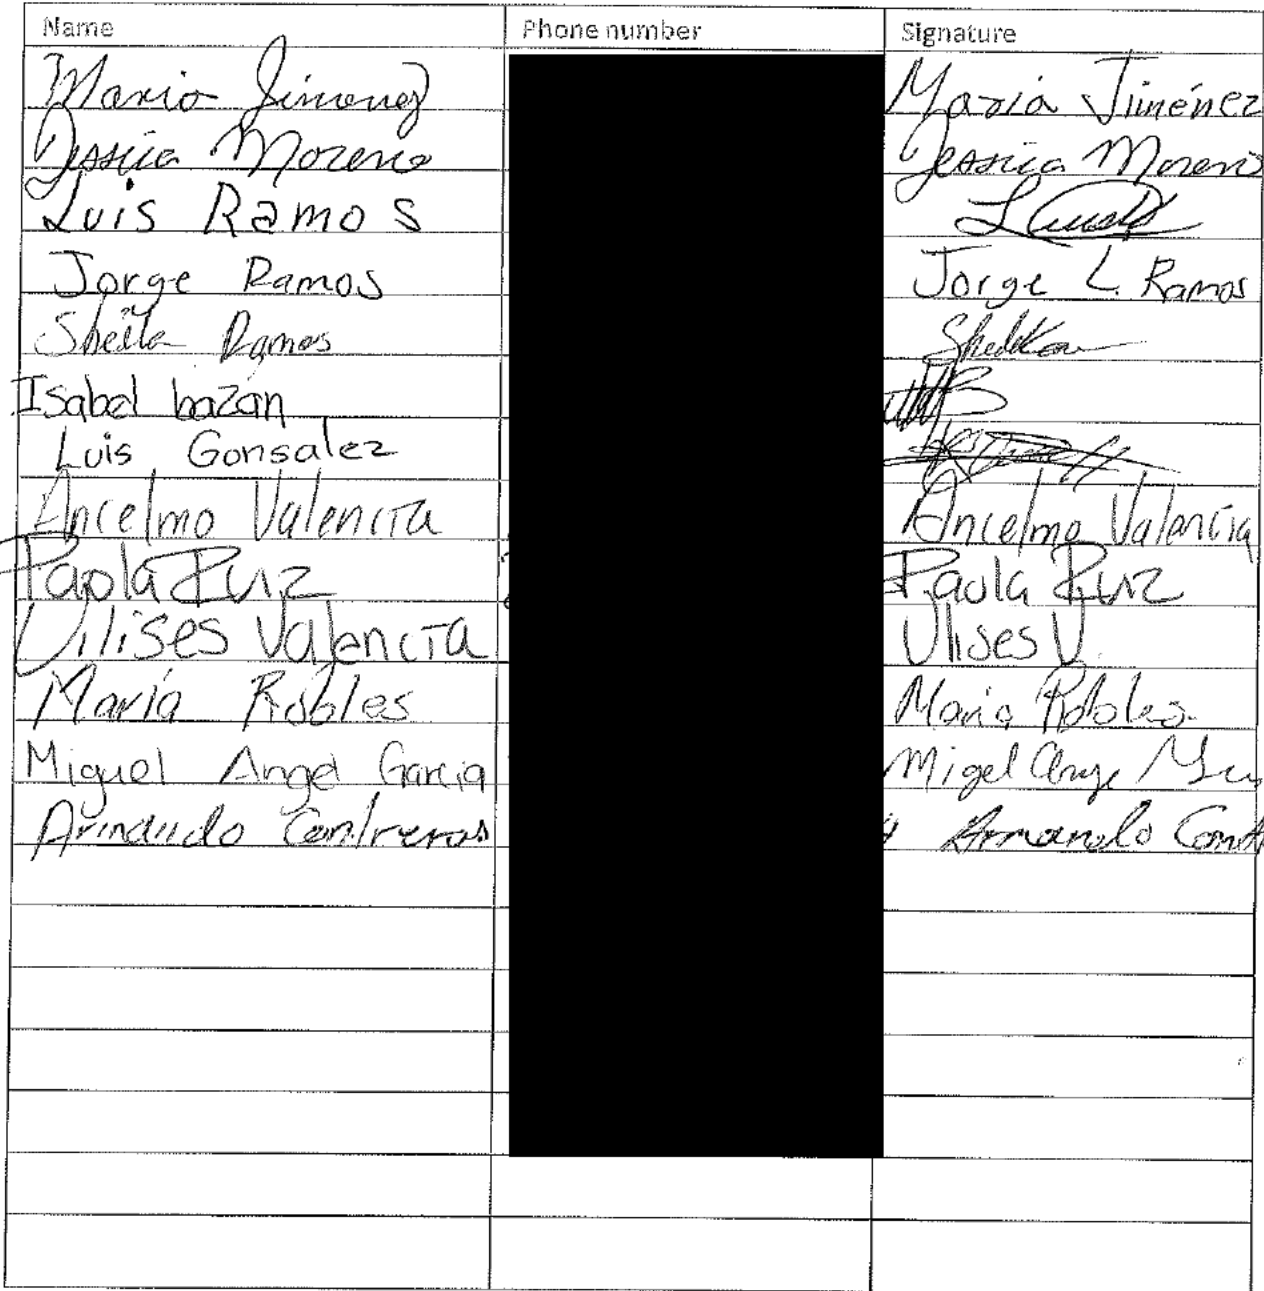 Name Phone number Signature
Maria Jimenez María Jiménez
Jessica Moreno Jessica Moreno
Luis Ramos
Jorge Ramos Jorge L. Ramos
Sheila Ramos
Isabel bazan
Luis Gonsalez
Ancelmo Valencia Ancelmo Valencia
Paola Ruiz Paola Ruiz
Ulises Valencia Ulises V.
María Robles Maria Robles
Miguel Angel Garcia Migel Ange
Armando Contreras Armando Cont